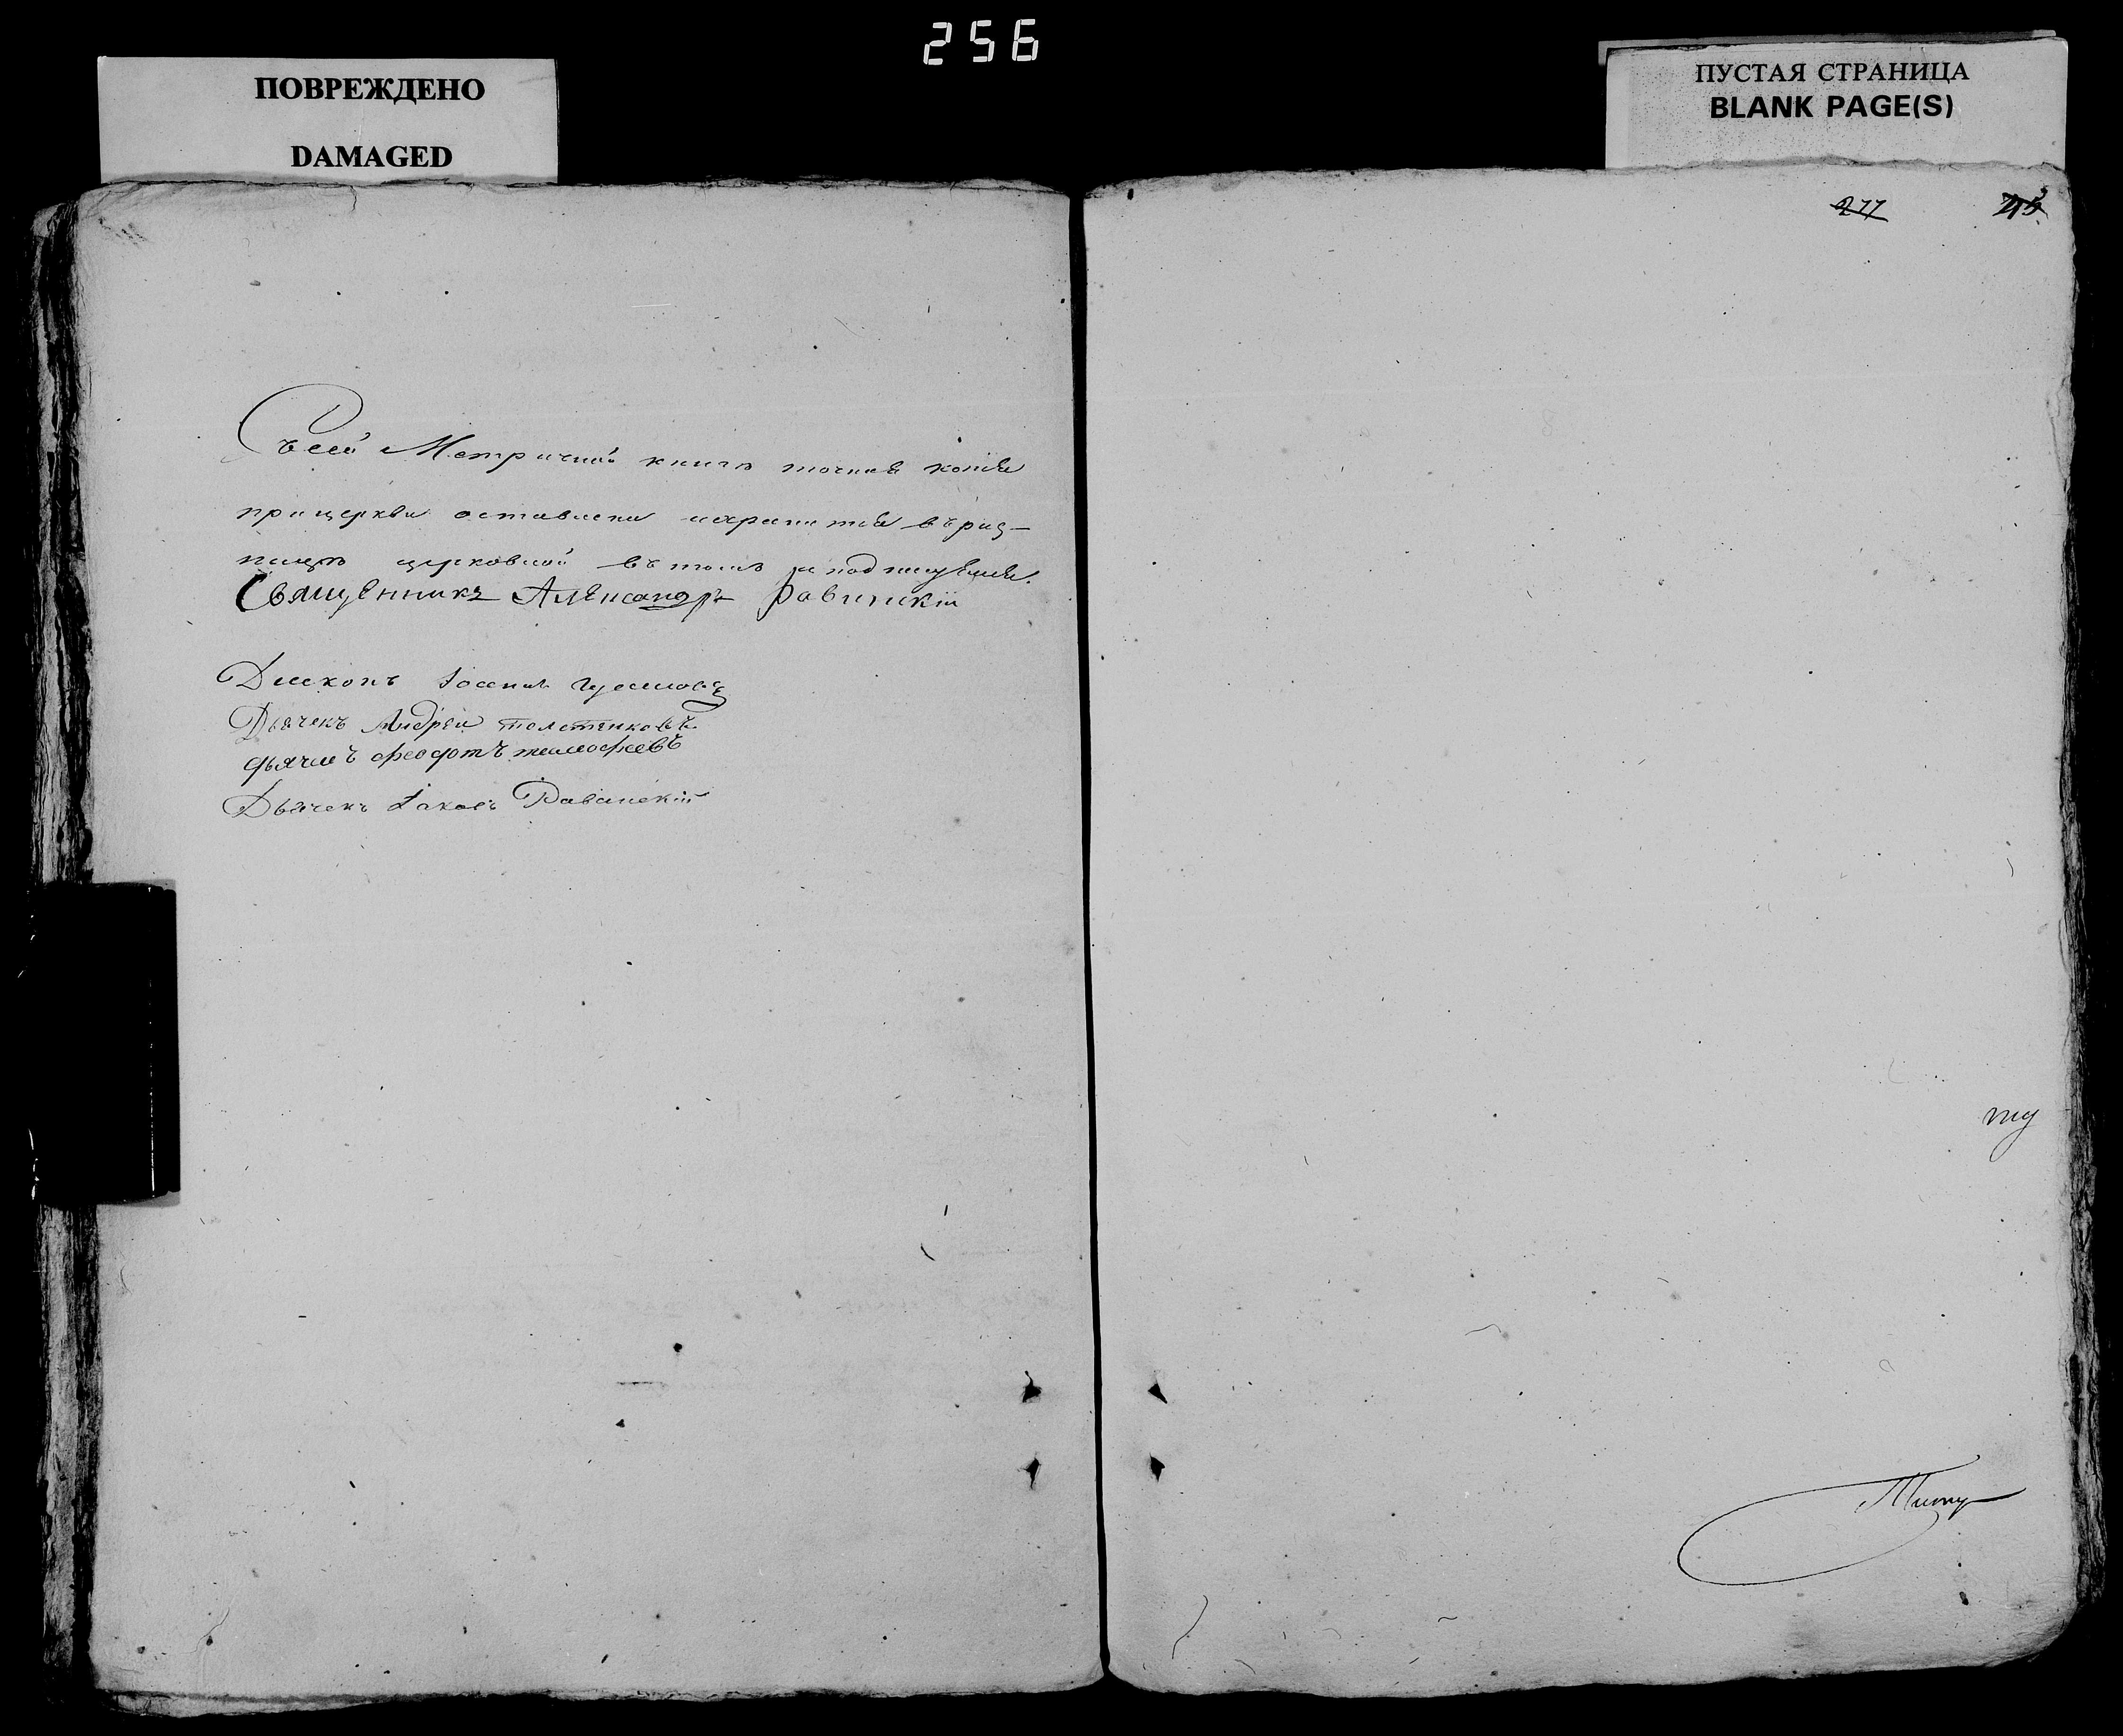 256
ПОВРЕЖДЕНО
DAMAGED
ПУСТАЯ СТРАНИЦА
BLANK PAGE(S)
277
Съсей Метричной книги точная копія
при церкви оставлена ихранится въриз-
ницѣ церковной вътомъ иподпишуемся.
Священникъ Александръ Равинскій
Диаконъ Іосифъ
Дьячекъ Андрей толстяковъ
дьячекъ феодотъ тимофеевъ
Дьячекъ Іаковъ Равинскій
ту